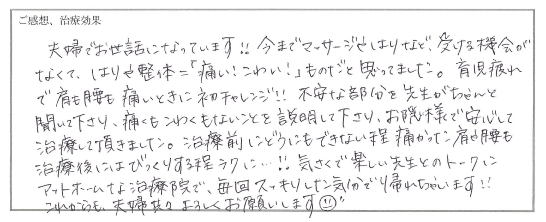 ご感想、治療効果
夫婦でお世話になっています!! 今までマッサージやはりなど、受ける機会が
なくて、はりや整体=「痛い!こわい!」ものだと思ってました。育児疲れ
で肩も腰も痛いときに初チャレンジ!! 不安な部分を先生がちゃんと
聞いて下さり、痛くもこわくもないことを説明して下さり、お陰様で安心して
治療して頂きました。治療前にどうにもできない程痛かった肩や腰も
治療後にはびっくりする程ラクに…!! 気さくで楽しい先生とのトークに
アットホームな治療院で、毎回スッキリした気分で帰れちゃいます!!
これからも、夫婦共々よろしくお願いします